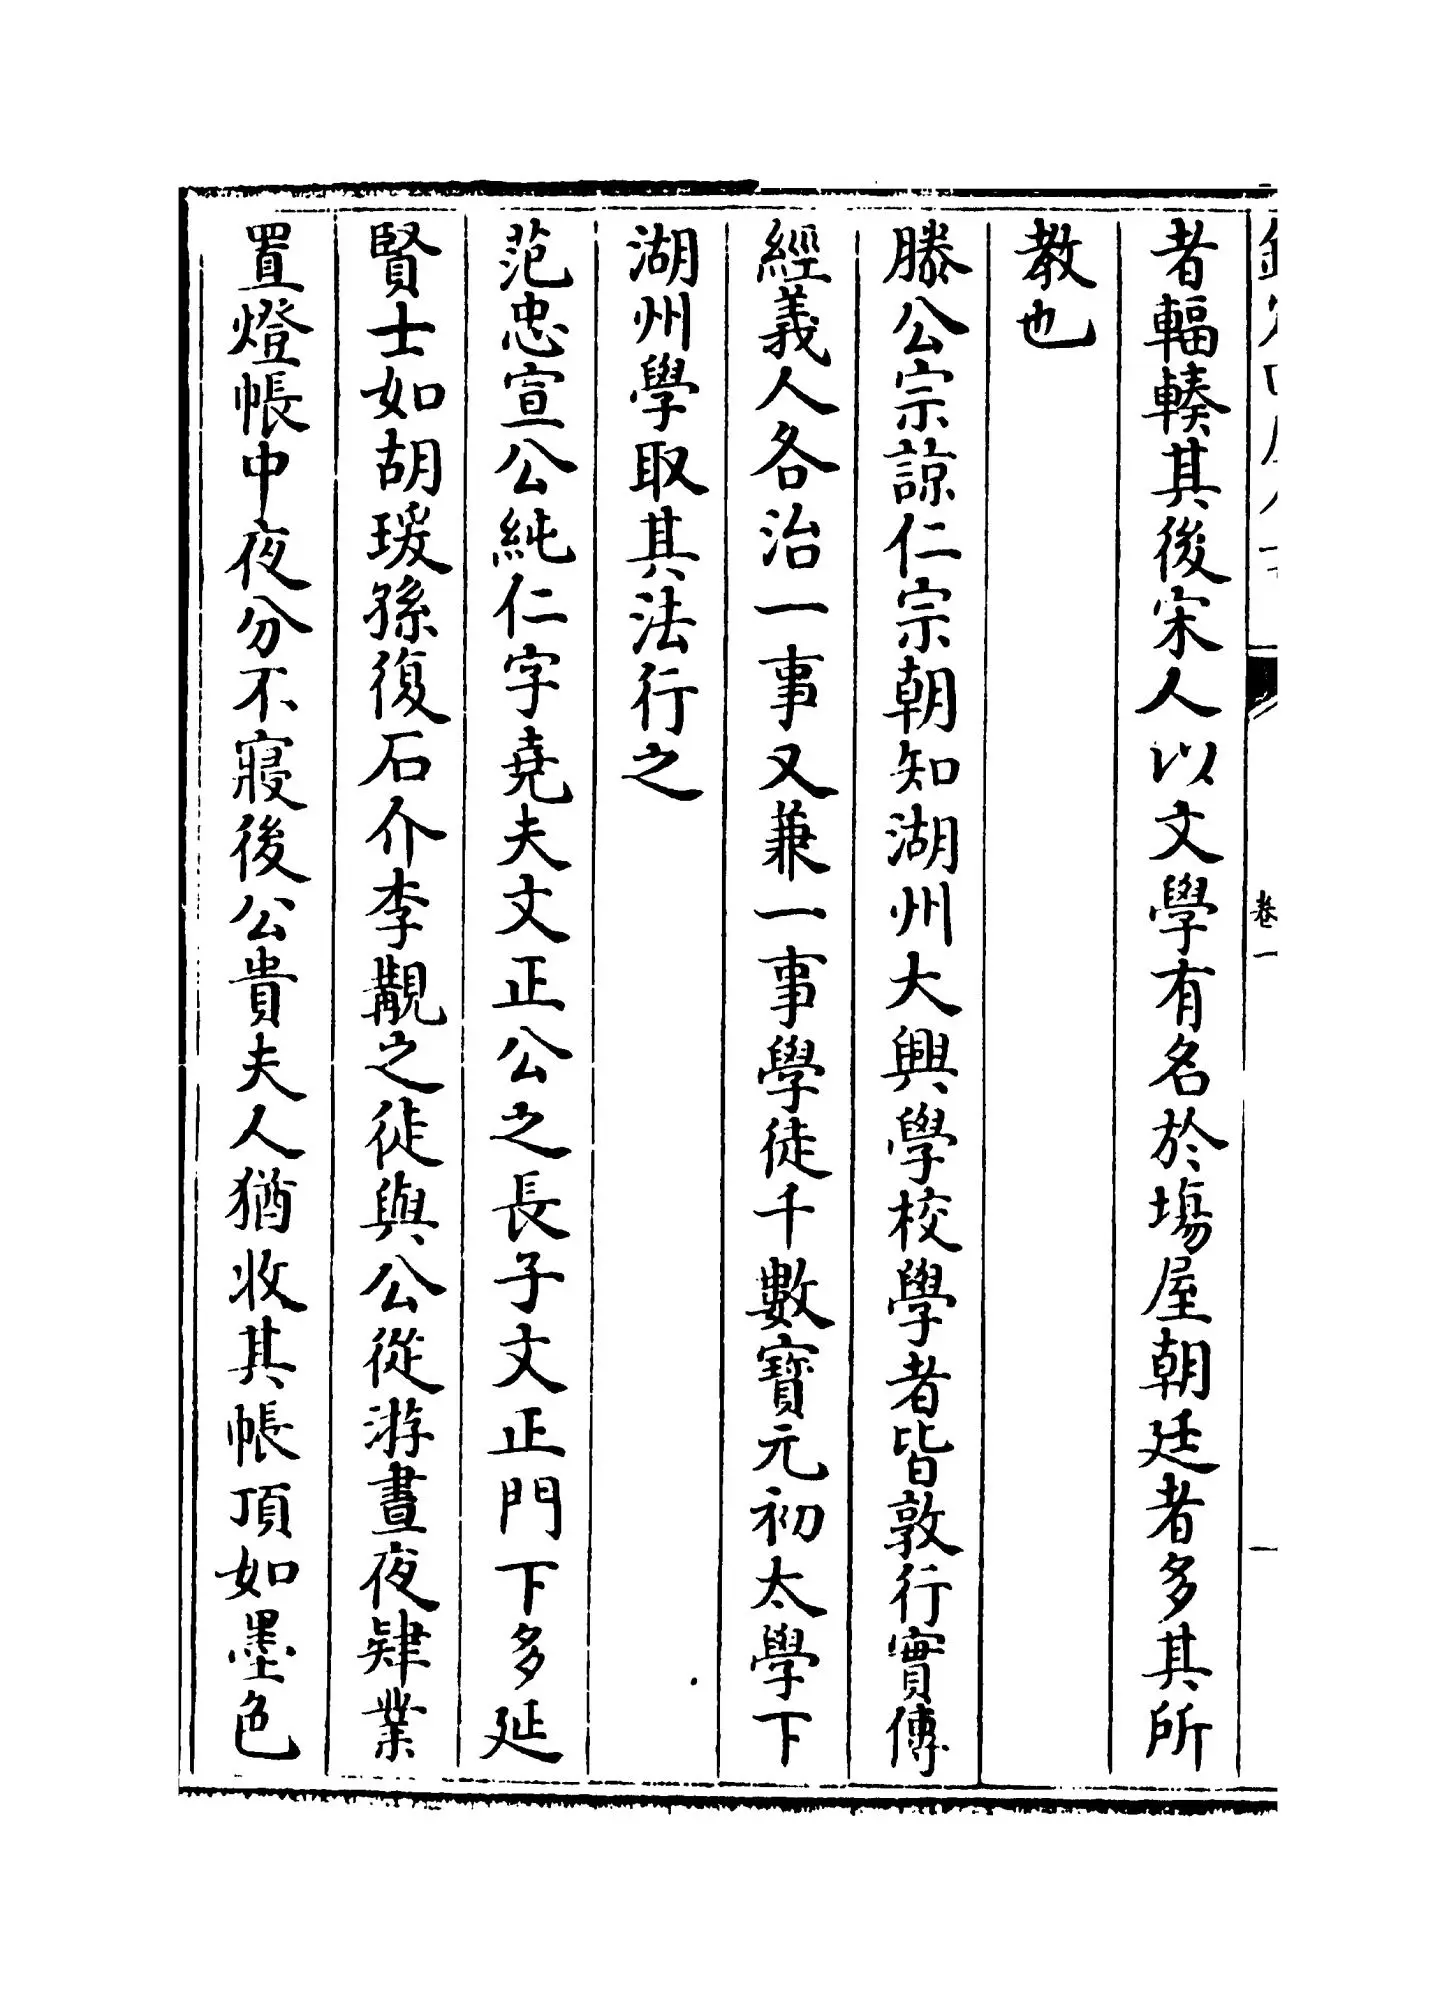 者輻輳其後宋人以文學有名於塲屋朝廷者多其所
教也
滕公宗諒仁宗朝知湖州大興學校學者皆敦行實傳
經義人各治一事又兼一事學徒千數寳元初太學下
湖州學取其法行之
范忠宣公純仁字堯夫文正公之長子文正門下多延
賢士如胡瑗孫復石介李覯之徒與公從游晝夜肄業
置燈帳中夜分不寢後公貴夫人猶收其帳頂如墨色
卷一